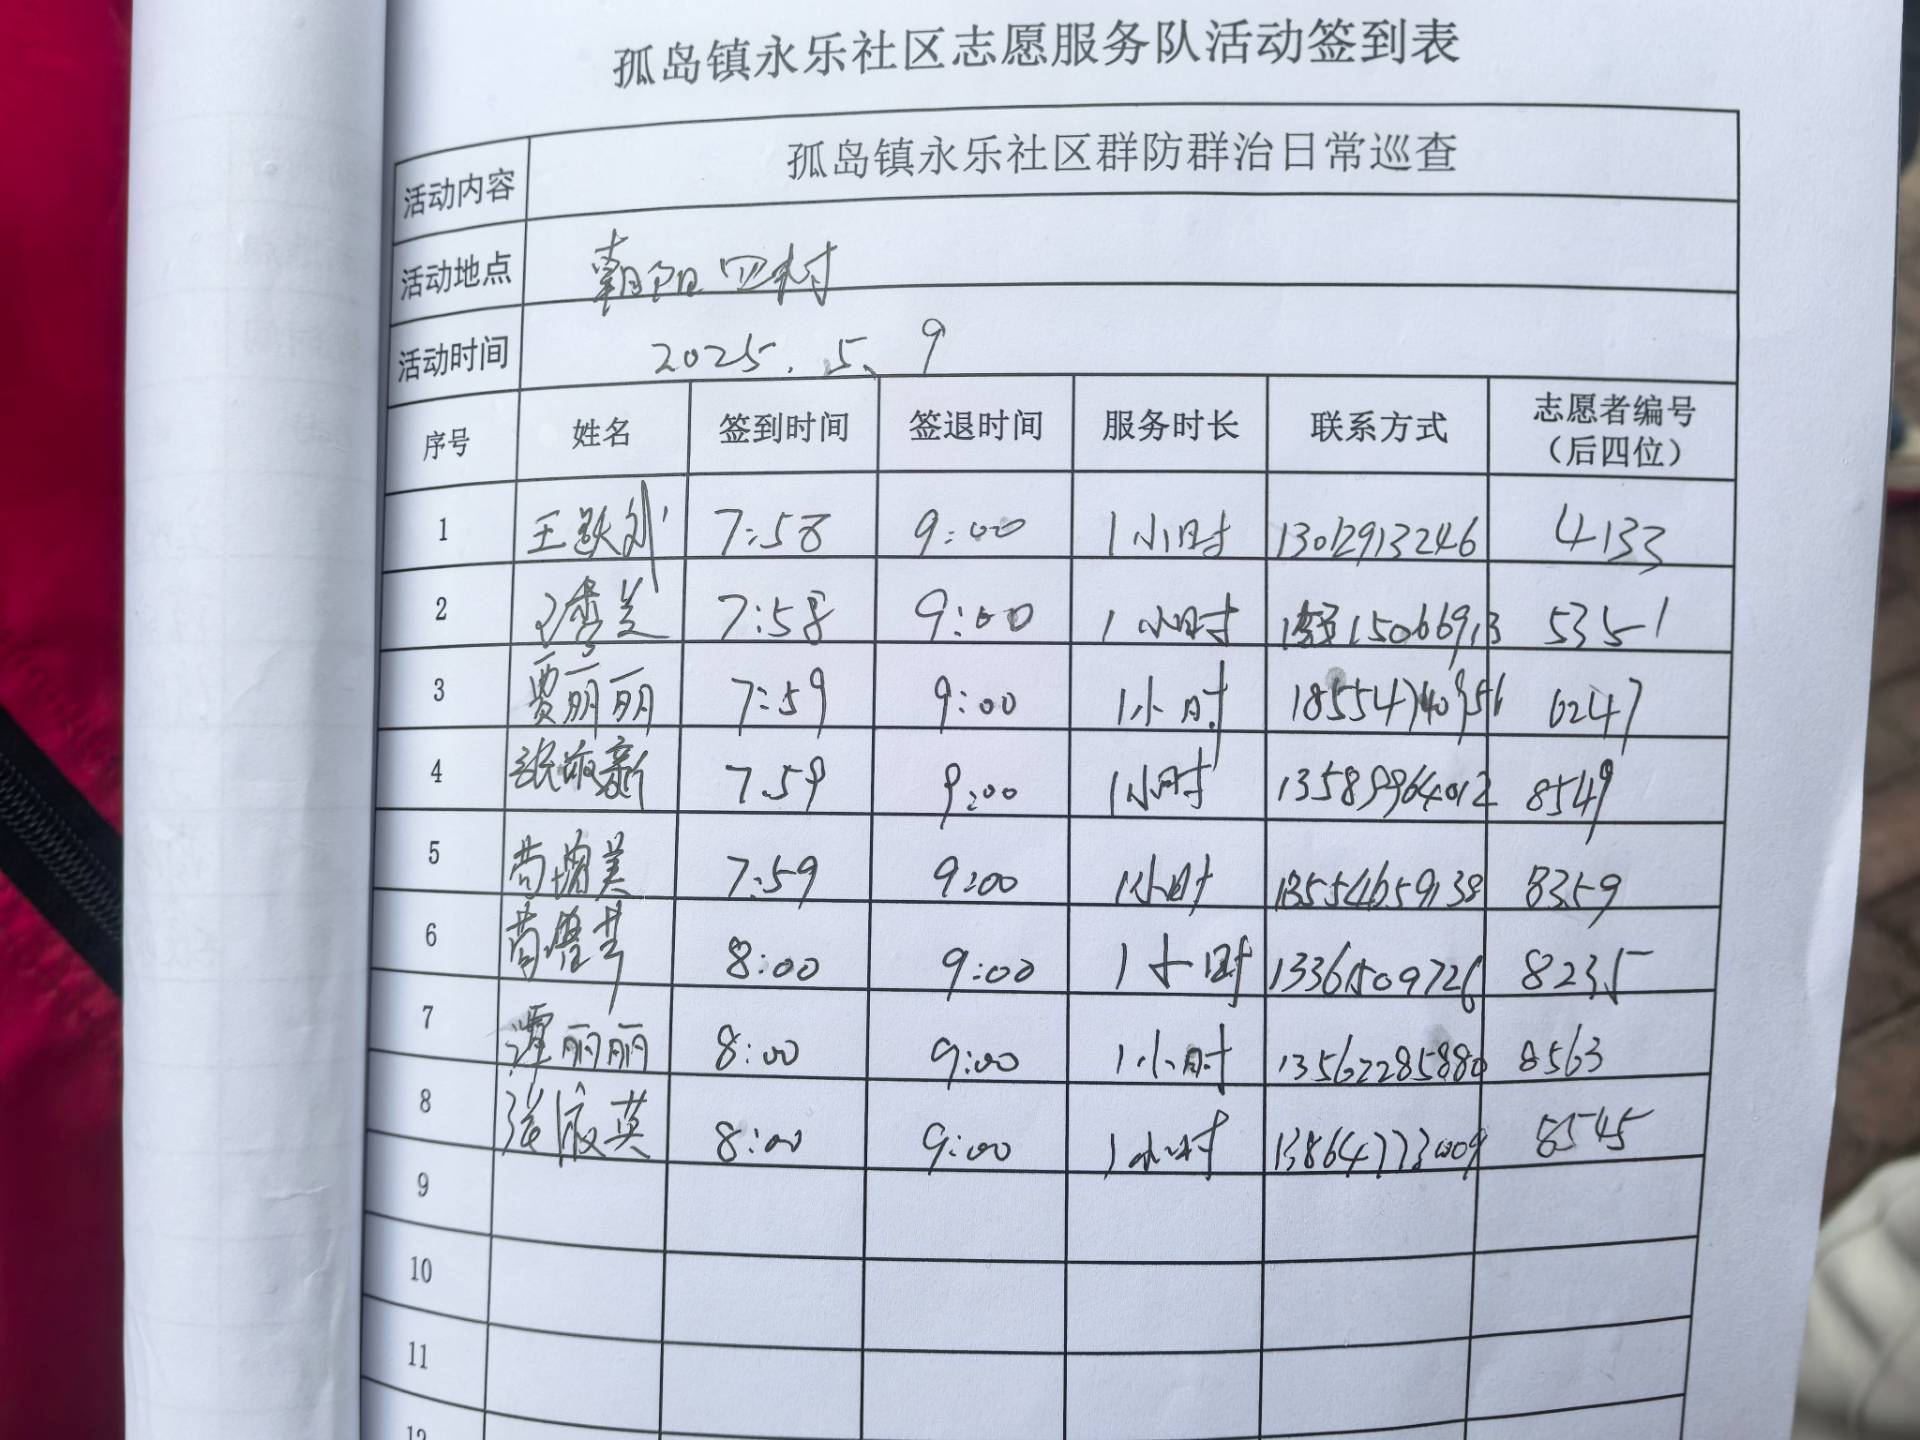 孤岛镇永乐社区志愿服务队活动签到表
活动内容 孤岛镇永乐社区群防群治日常巡查
活动地点 朝阳四村
活动时间 2025.5、9
序号 姓名 签到时间 签退时间 服务时长 联系方式 志愿者编号（后四位）
1 王 7:58 9:00 1小时 13012913246 4133
2 7:58 9:00 1小时 5351
3 贾丽丽 7:59 9:00 1小时 6247
4 张 新 7.59 9:00 1小时 13589964012 8549
5 苟增美 7:59 9:00 1小时 8359
6 苟增 8:00 9:00 1小时 13361509726 8235
7 谭丽丽 8:00 9:00 1小时 13562285880 8563
8 张淑英 8:00 9:00 1小时 13864773009 8545
9
10
11
12